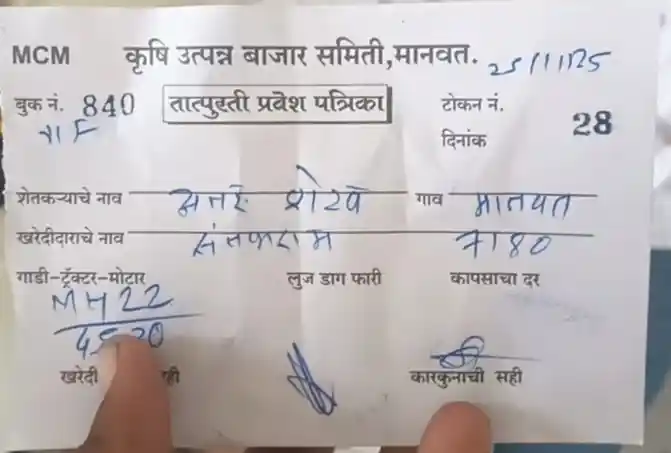 MCM कृषि उत्पन्न बाजार समिती,मानवत. 25/11/25
बुक नं. 840 तात्पुरती प्रवेश पत्रिका टोकन नं. 28
दिनांक
शेतकऱ्याचे नाव गाव मानवत
खरेदीदाराचे नाव 7180
गाडी-ट्रॅक्टर-मोटार लुज डाग फारी कापसाचा दर
MH22
खरेदी ही कारकुनाची सही